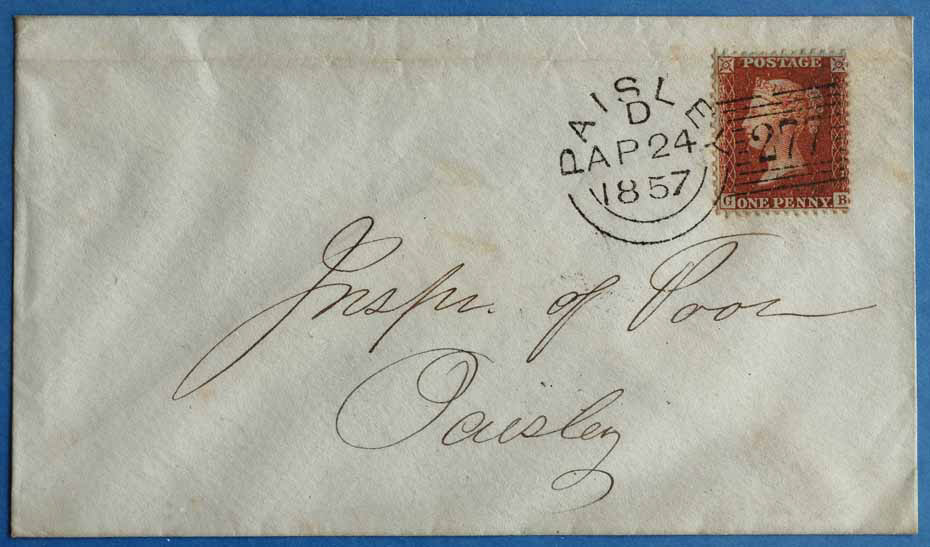 POSTAGE
PAISLEY
D
AP 24
1857
277
G ONE PENNY B
Inspr. of Poor
Paisley